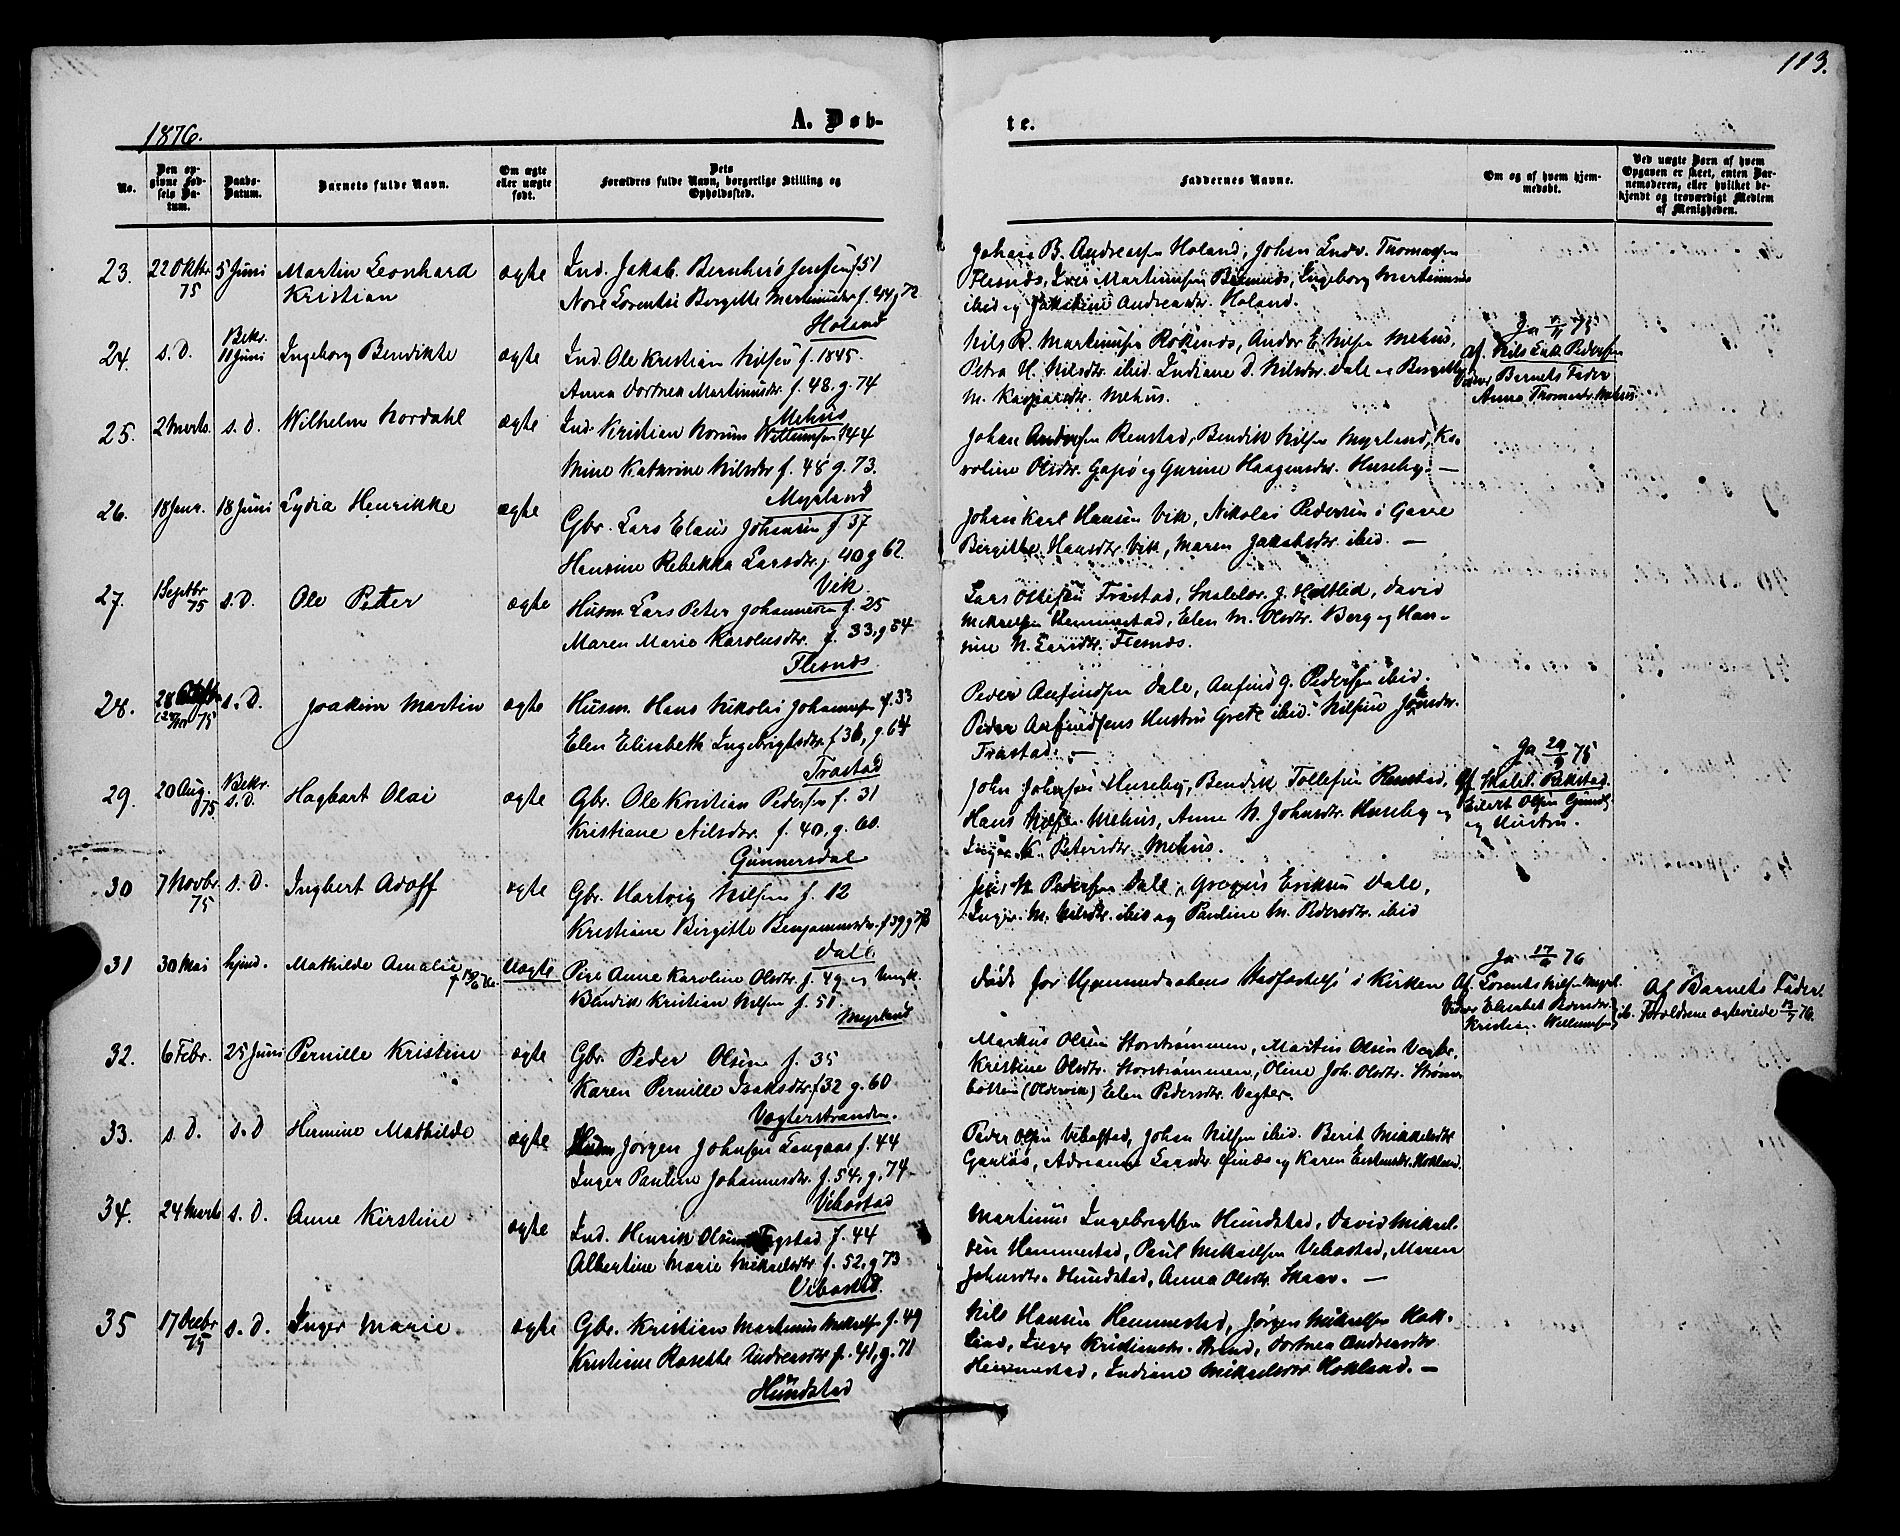 113.
1876.
A. Døb-
te.
No.
Den op-
givne Fød-
sels Da-
tum.
Daabs-
Datum.
Barnets fulde Navn.
Om ægte
eller uægte
født.
Dets
Forældres fulde Navn, borgerlige Stilling og
Opholdssted.
Faddernes Navne.
Om og af hvem hjem-
medøbt.
Ved uægte Børn af hvem
Opgaven er skeet, enten Bar-
nemoderen, eller hvilket be-
kjendt og troværdigt Medlem
af Menigheden.
23. 22 Oktbr 75 5 Juni Martin Leonhard
Kristian
ægte
Ind. Jakob Bernhard Jensen f. 51
Nore Lorentse Bergitte Martinusdtr f. 44 g 72
Holand
Johan B. Andreassen Holand, Johan Endr. Thomassen
Flesnæs, Martinussen Ingeborg Martinusd
ibid og Andreasdr. Holand.
24. s. D. Bekr. 11 Juni Ingeborg Bendikte
ægte
Ind. Ole Kristian Nilsen f. 1845.
Anna Dortnea Martinusdtr f. 48. g. 74
Mehus
Nils R. Martinussen Røkenæs, Andor E. Nilsen Mehus,
Petra H. Nilsdtr ibid. Indiane D. Nilsdr. Dale og Bergitte
M. Kasparsdtr. Mehus.
Ja 75
Af. Nils Pedersen
Vidner Barnets Fader
Anna Thomasdr. Mehus
25. 2 Marts. s. D. Wilhelm Nordahl
ægte
Ind. Kristian Norum Willumsen f 44
Mine Kathrine Nilsdtr f. 48 g. 73.
Myrland
Johan Andersen Renstad, Bendik Nilsen Myrland, Ka-
roline Olsdtr. Gapø og Gurine Haagensdtr. Huseby. —
26. 18 Janr. 18 Juni Lydia Henrikke
ægte
Gbr. Lars Elaus Johansen f. 37
Hansine Rebekka Larsdtr. f 40 g 62.
Vik
Johan Karl Hansen Vik, Nikolai Pedersen i Gaare
Birgitte Hansdtr. Vik, Maren Jakobsdtr. ibid. —
27. 1 Septbr 75 s. D. Ole Petter
ægte
Husm. Lars Peter Johannesen f. 25
Maren Marie Karolusdtr. f. 33, g 54
Flesnæs.
Lars Trastad, J. David
Mikaelsen Hemmestad, Elen M. Olsdtr. Berg og Han-
sine N. Larsdtr. Flesnæs.
28. 28 75 s. D. Joakim Martin
ægte
Husm. Hans Nikolai Johannesen f. 33
Elen Elisabeth Ingebrigtsdtr. f 36, g. 64
Trastad
Peder Anfindsen Dale, Anfind J. Pedersen ibid.
Peder Anfindsens Hustru Grete ibid. Nilsine
Trastad. —
29. 20 Aug. 75 Bekr. s. D. Hagbart Olai
ægte
Gbr. Ole Kristian Pedersen f. 31
Kristiane Nilsdtr. f. 40, g. 60.
Gunnersdal
John Johnsen Huseby, Bendik Tollefsen Renstad,
Hans Nilsen Mehus, Anne N. Johnsdtr. Huseby og
Inger K. Petersdtr. Mehus.
Ja 75
Af Skolel. Rakstad.
Eilert Olsen
og Hustru.
30 7 Novbr 75 s. D. Ingbert Adolf
ægte
Gbr. Hartvig Nilsen f. 12
Kristiane Birgitte Benjaminsdtr. f 39 g 73
Dale
Jens N. Pedersen Dale, Eriksen Dale,
Inger M. Nilsdtr. ibid og Pauline M. Pedersdtr. ibid
31 30 Mai hjmd. Mathilde Amalie
Uægte
Pige Anne Karoline Olsdtr. f. 49 og Ungk.
Bendik Kristian Nilsen f. 51.
Myrland
Døde for Hjemmedaabens Stadfæstelse i Kirken
Ja 17/6 76
Af. Lorents Nilsen Myrl.
Vidner Elisabet Pedersdtr.
Kristian Willumsen ib.
Af Barnets Fader.
Forældrene ægteviede 76.
32. 6 Febr. 25 Juni Pernille Kristine
ægte
Gbr. Peder Olsen f. 35
Karen Pernille Isaksdtr. f 32 g. 60
Vagterstranden.
Markus Olsen Storstrømmen, Martin Olsen Vagter,
Kristine Olsdtr. Storstrømmen, Oline Joh. Olsdtr. Strøms-
botten (Oldervik) Elen Pedersdtr. Vagter.
33. s. D. s. D Hermine Mathilde
ægte
Husm Jørgen Johnsen Langaas f. 44
Inger Pauline Johannesdtr. f. 54, g. 74
Vebostad
Peder Olsen Vebostad, Johan Nilsen ibid. Berit Mikkelsdtr
Adrianne Larsdtr. og Karen Hokland.
34. 24 Marts s. D. Anne Kirstine
ægte
Ind. Henrik Olsen Fagstad f. 44
Albertine Marie Mikaelsdtr f. 52, g 73
Vebostad.
Martinus Ingebrigtsen Hundstad, David Mikael-
sen Hemmestad, Paul Mikaelsen Vebostad, Maren
Johnsdtr. Hundstad, Anna Olsdtr. Skaar. —
35 17 Decbr 75 s. D. Inger Marie
ægte
Gbr. Kristian Martinus Mikkelsen f. 49
Kristine Rosette Andreasdtr f. 41, g. 71
Hundstad
Nils Hansen Hemmestad, Jørgen Mikaelsen Hok-
land, Inger Kristiansdtr. Strand, Dortnea Andreasdtr
Hemmestad, Indiane Mikaelsdtr Hokland. —